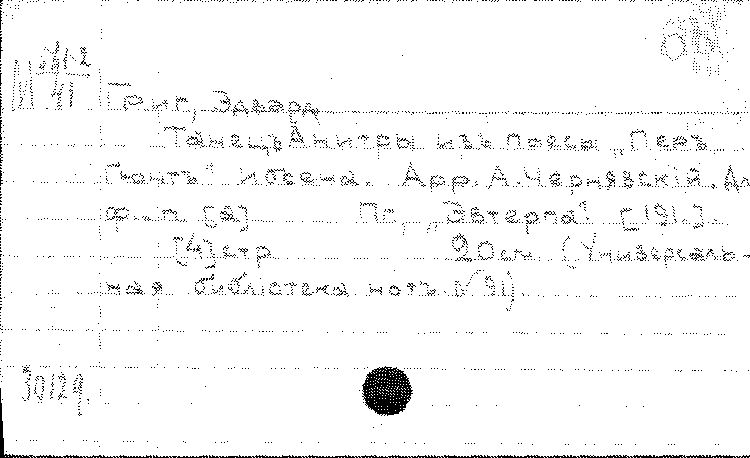 Григ, Эдвард
Танецъ Анитры изъ пьесы „Перъ
Гюнтъ" Ибсена. Арр. А. Чернявскій. Дл
ф.-п [2] Пг, „Эвтерпа" [191.].
[4] стр 20 см (Универсаль-
ная библіотека нотъ № 91)
30129.